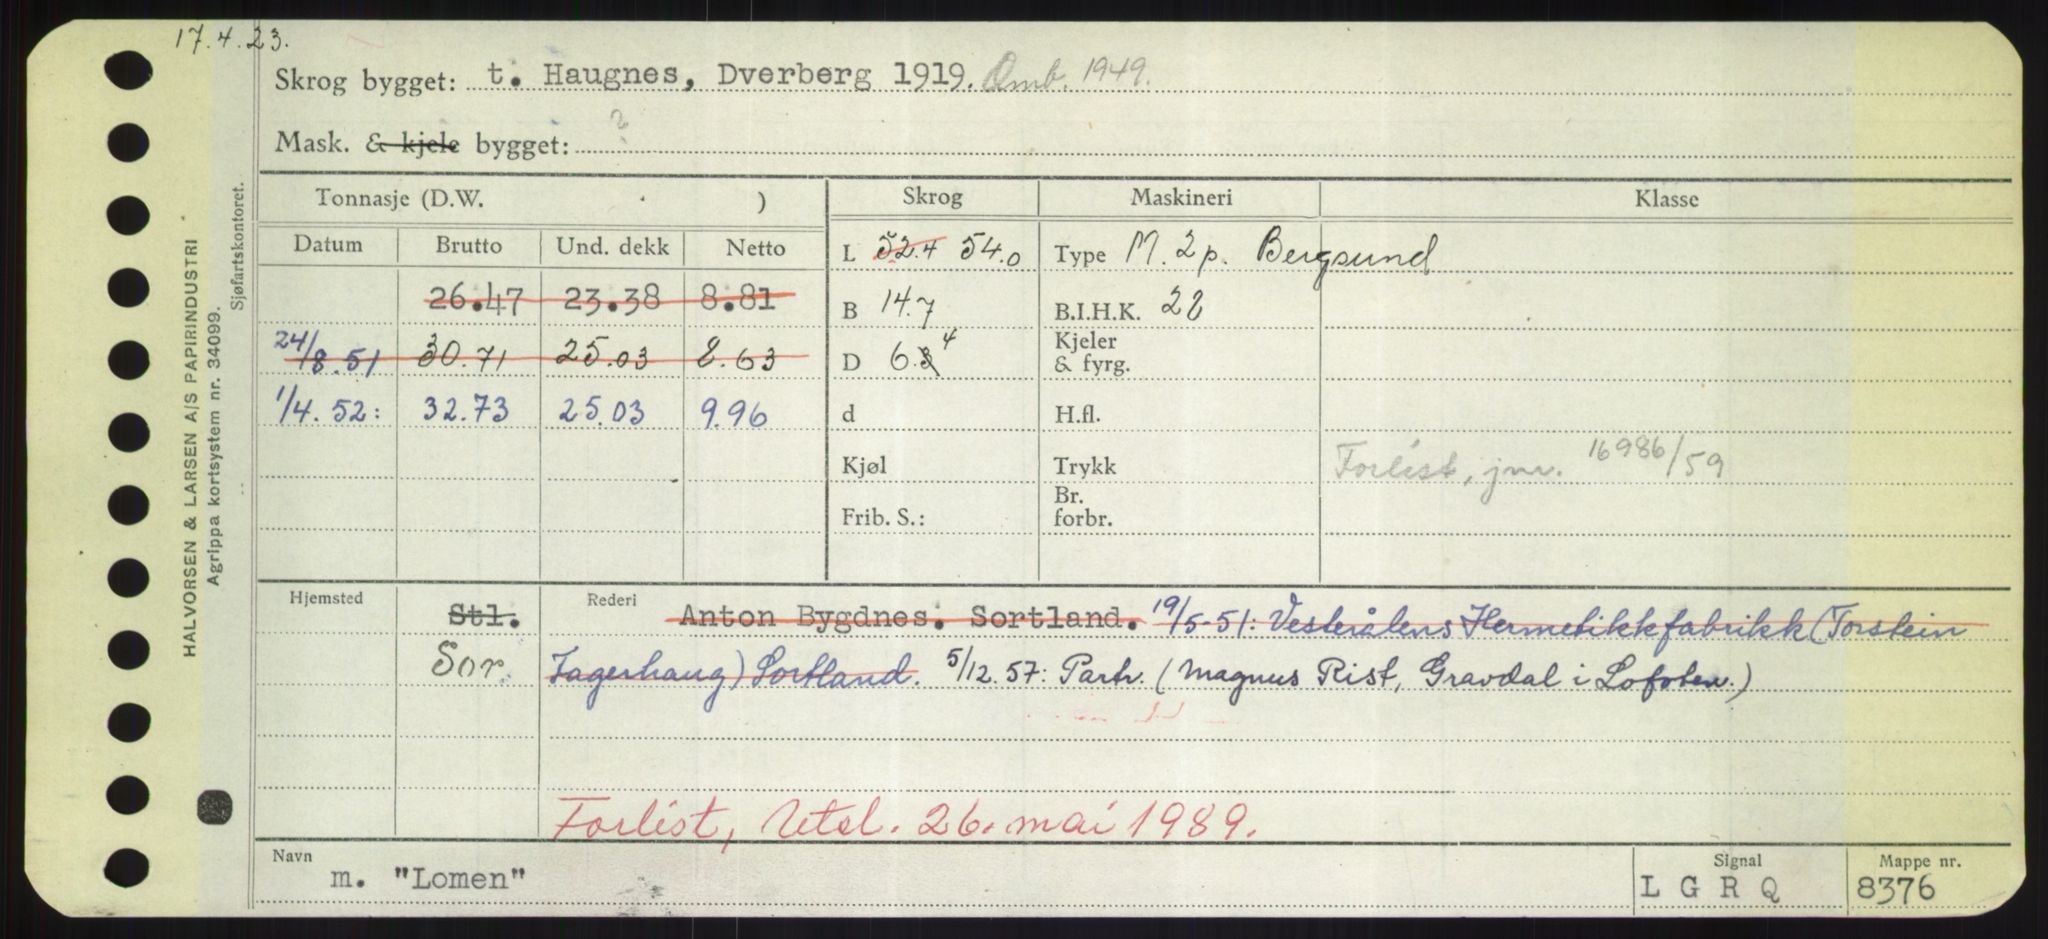 17.4.23.
Skrog bygget: t. Haugnes, Dverberg 1919. Omb. 1949.
Mask. & kjele bygget: ?
Tonnasje (D.W. ) Skrog Maskineri Klasse
Datum Brutto Und. dekk Netto L 52.4 54.0 Type M. 2p. Bergsund
26.47 23.38 8.81 B 14.7 B.I.H.K. 22
24/8.51 30.71 25.03 8.63 D 6.3 4 Kjeler & fyrg.
1/4.52: 32.73 25.03 9.96 d H.fl.
Kjøl Trykk Forlist, jnr. 16986/59
Frib. S.: Br. forbr.
Hjemsted Stl. Rederi Anton Bygdnes. Sortland. 19/5-51: Vesterålens Hermetikkfabrikk (Torstein
Sor Jagerhaug) Sortland. 5/12.57: Partr. (Magnus Rist, Gravdal i Lofoten.)
Forlist, Utsl. 26. mai 1989.
Navn Signal Mappe nr.
m. "Lomen" L G R Q 8376
HALVORSEN & LARSEN A/S PAPIRINDUSTRI
Agrippa kortsystem nr. 34099.
Sjøfartskontoret.